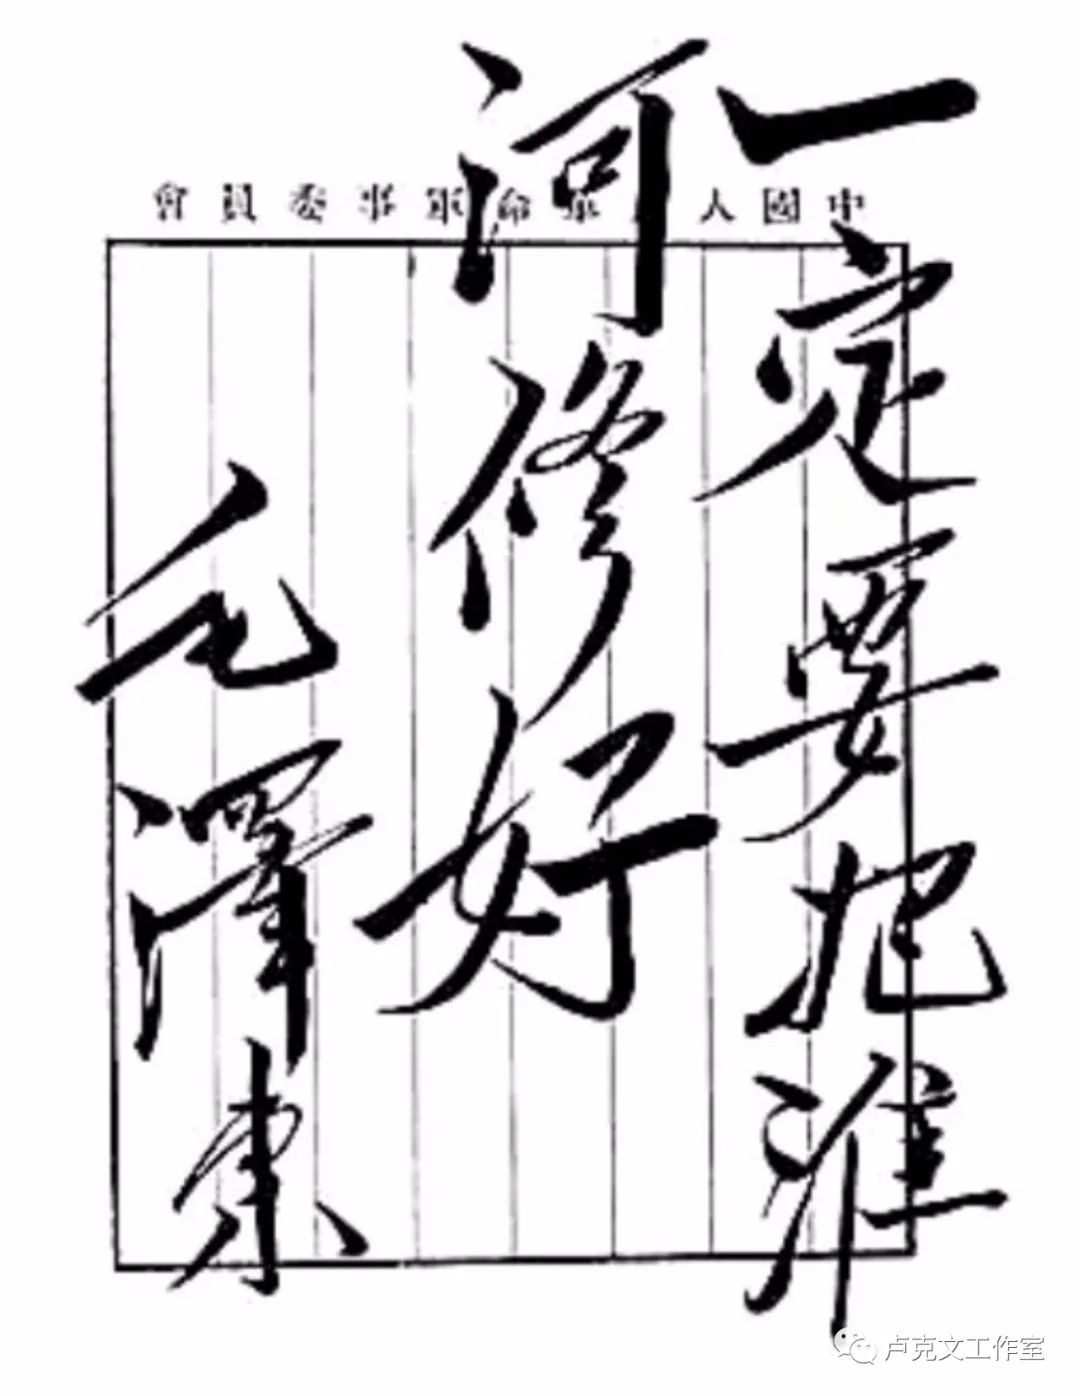 中國人民革命軍事委員會
一定要把淮
河修好
毛澤東
卢克文工作室